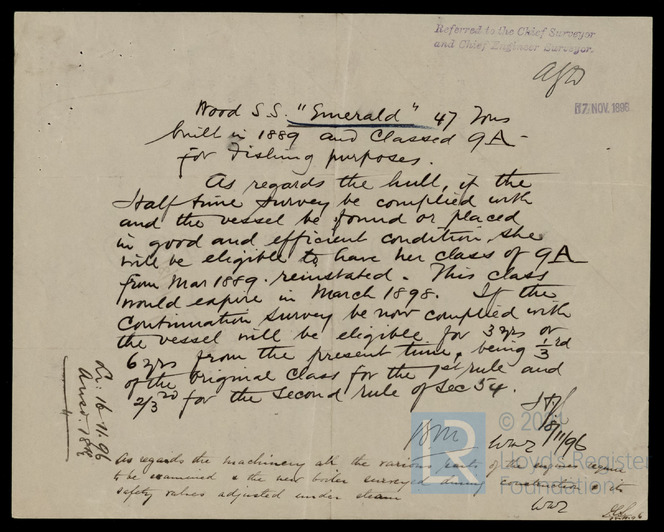 Referred to the Chief Surveyor
and Chief Engineer Surveyor.
17 NOV. 1896
Wood S.S. "Emerald" 47 Tons
built in 1889 and Classed 9A
for Fishing purposes.
As regards the hull, if the
Half time Survey be complied with
and the vessel be found or placed
in good and efficient condition she
will be eligible to have her class of 9A
from Mar 1889. reinstated. This class
would expire in March 1898. If the
Continuation Survey be now complied with
the vessel will be eligible for 3 yrs or
6 yrs from the present time, being 1/3rd
of the original Class for the 1st rule and
2/3rd for the second rule of Sec 54.
18/11/96
Li. 16.11.96
As regards the machinery all the various parts of the engines require
to be examined & the new boiler surveyed during construction & its
safety valves adjusted under steam
© 2021
Lloyd's Register
Foundation
LR